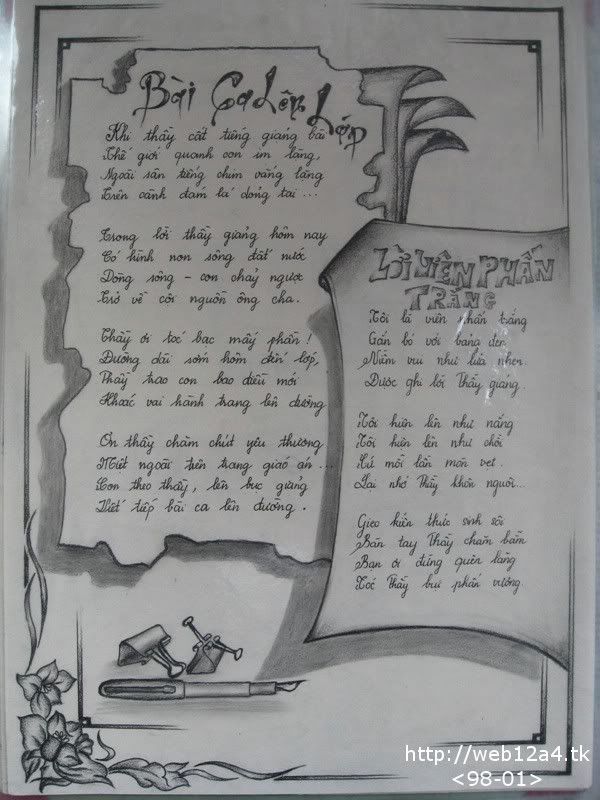 Bài Ca Lên Lớp
Khi thầy cất tiếng giảng bài
Thế giới quanh con im lặng,
Ngoài sân tiếng chim vắng lặng
Trên cành đam lá dỏng tai ...
Trong lời thầy giảng hôm nay
Có hình non sông đất nước
Dòng sông - con chảy ngược
Trở về cội nguồn ông cha.
Thầy ơi tóc bạc mấy phần !
Đường dài sớm hôm đến lớp,
Thầy trao con bao điều mới
Khoác vai hành trang lên đường
Ơn thầy chăm chút yêu thương
Miết ngoài trên trang giáo án ...
Con theo thầy, lên bục giảng
Viết tiếp bài ca lên đường .
LỜI VIÊN PHẤN
TRẮNG
Tôi là viên phấn trắng
Gắn bó với bảng đen
Niềm vui như lửa nhen
Được ghi lời Thầy giảng.
Tôi hiện lên như nắng
Tôi hiện lên như chồi
Cứ mỗi lần mòn vẹt .
Lại nhớ Thầy khôn nguôi...
Gieo kiến thức sinh sôi
Bàn tay Thầy chăm bẵm
Bạn ơi đừng quên lãng
Tóc Thầy bụi phấn vương.
http://web12a4.tk
<98-01>